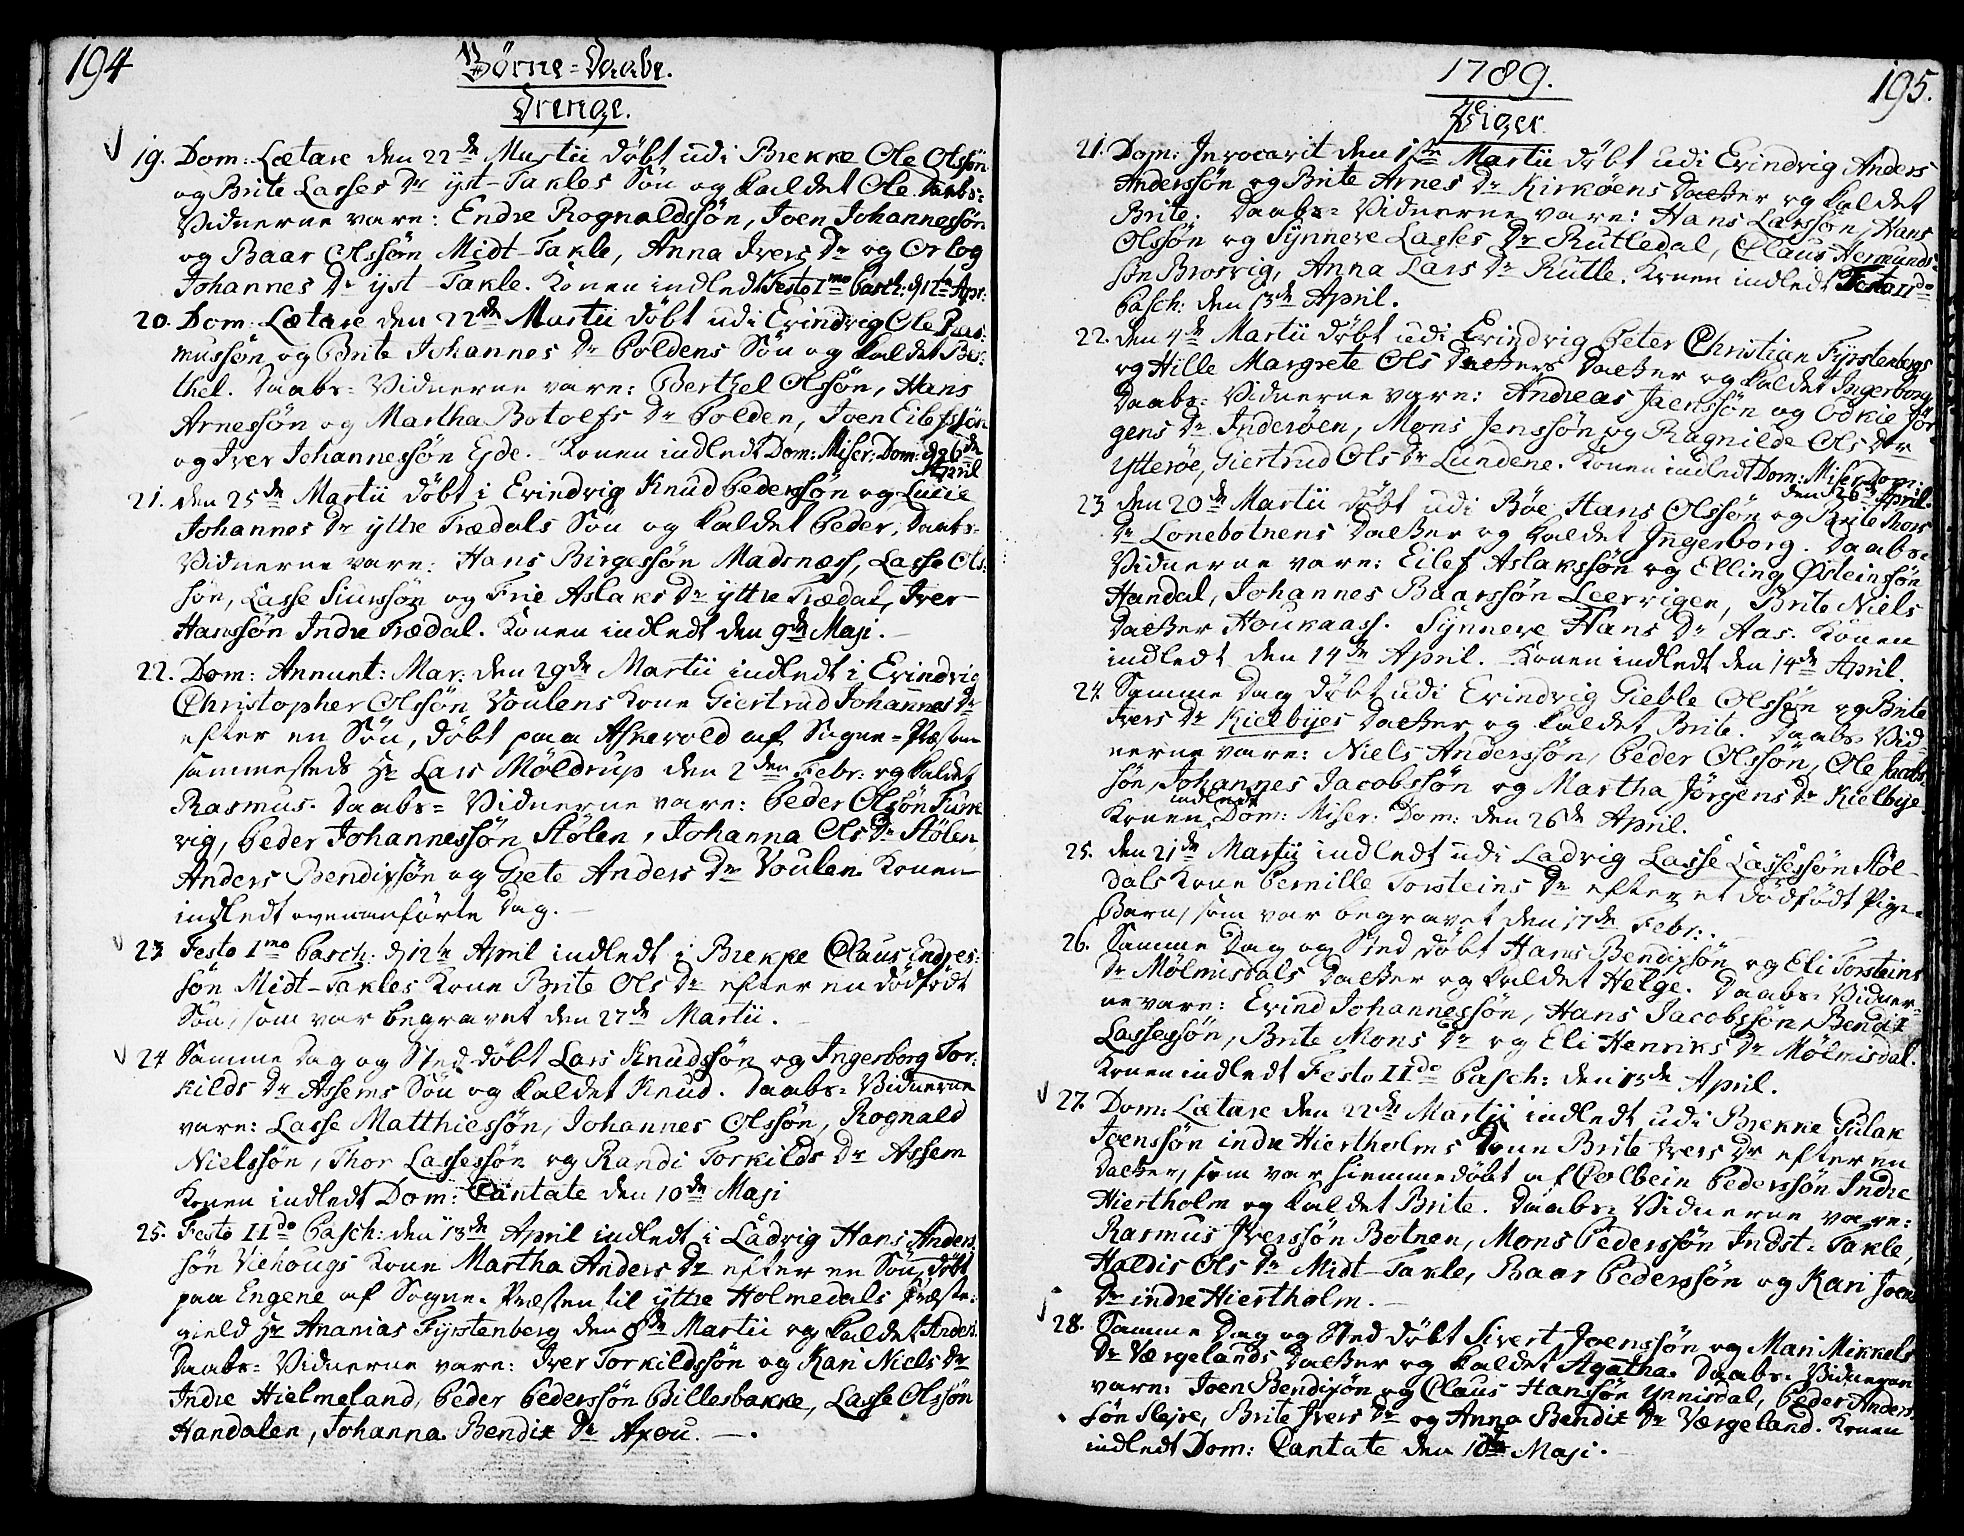 194
Börne=Daabe.
Drenge.
19. Dom: Lætare den 22de Martii döbt udi Brekke Ole Olssön
og Brite Lasses Dr yst-Takles Sön og kaldet Ole. Daabs=
Vidnerne vare: Endre Rognaldssön, Joen Johannessön
og Baar Olssön Midt-Takle, Anna Ivers Dr og Orlog
Johannes Dr yst-Takle. Konen indledt Festo 1mo Pasch: d 12te Apr:
20. Dom: Lætare den 22de Martii döbt udi Evindvig Ole Ras=
mussön og Brite Johannes Dr Poldens Sön og kaldet Ber=
thel. Daabs=Vidnerne vare: Berthel Olssön, Hans
Arnessön og Martha Botolfs Dr Polden, Joen Eilefssön
og Iver Johannessön Eyde. Konen indledt Dom: Miser: Dom: d 26de
April
21. den 25de Martii döbt i Evindvig Knud Pederssön og Lucie
Johannes Dr yttre Trædals Sön og kaldet Peder. Daabs=
Vidnerne vare: Hans Birgessön Madsnæss, Lasse Ols=
sön, Lasse Siurssön og Frie Aslaks Dr yttre Trædal, Iver
Hanssön Indre Trædal. Konen indledt den 9de Maji.
22. Dom: Annunt: Mar: den 29de Martii indledt i Evindvig
Christopher Olssön Voulens Kone Giertrud Johannes Dr
efter en Sön, döbt paa Askevold af Sogne=Præsten
sammesteds Hr Lars Möldrup den 2den Febr: og kaldet
Rasmus. Daabs=Vidnerne vare: Peder Olssön Furre
vig, Peder Johannessön Stölen, Johanna Ols Dr Stölen,
Anders Bendixsön og Grete Anders Dr Voulen. Konen
indledt ovenanförte Dag.
23 Festo 1mo Pasch: d 12te April indledt i Brekke Claus Endres=
sön Midt-Takles Kone Brite Ols Dr efter en dödfödt
Sön, som var begravet den 27de Martii.
24 Samme Dag og Sted döbt Lars Knudssön og Ingerborg Tor=
kilds Dr Assems Sön og kaldet Knud. Daabs=Vidnerne
vare: Lasse Matthiessön, Johannes Olssön, Rognald
Nielssön, Thor Lassessön og Randi Torkilds Dr Assem
Konen indledt Dom: Cantate den 10de Maji
25. Festo IIdo Pasch: den 13de April indledt i Ladvig Hans Anders
sön Viehougs Kone Martha Anders Dr efter en Sön, döbt
paa Engene af Sogne-Præsten til yttre Holmedals Præste=
gield Hr Ananias Fyrstenberg den 8de Martii og kaldet Anders.
Daabs=Vidnerne vare: Iver Torkildssön og Kari Niels Dr
Indre Hielmeland, Peder Pederssön Billesbakke, Lasse Olssön
Handalen, Johanna Bendix Dr

1789. 195.
Piger
21. Dom: Invocavit den 1ste Martii döbt udi Evindvig Anders
Anderssön og Brite Arnes Dr Kirköens Datter og kaldet
Brite. Daabs=Vidnerne vare: Hans Larssön, Hans
Olssön og Synneve Lasses Dr Rutledal, Claus Hermunds=
sön Brosvig, Anna Lars Dr Rutle. Konen indledt Festo IIdo
Pasch: den 13de April.
22. den 4de Martii döbt udi Evindvig Peter Christian Fyrstenbergs
og Hille Margrete Ols Datters Datter og kaldet Ingerborg
Daabs=Vidnerne vare: Andreas Jaenssön og Odkie Jör
gens Dr Inderöen, Mons Jenssön og Ragnilde Ols Dr
Ytteröe, Giertrud Ols Dr Lundene. Konen indledt Dom: Miser Dom:
den 26de April.
23 den 20de Martii döbt udi Böe Hans Olssön og Brite Thors
Dr Lonebotnens Datter og kaldet Ingerborg. Daabs=
Vidnerne vare: Eilef Aslakssön og Elling Østeinssön
Handal, Johannes Baarssön Leervigen, Brite Niels
Datter Houkaass. Synneve Hans Dr Aas. Konen
indledt den 14de April. Konen indledt den 14de April.
24 Samme Dag döbt udi Evindvig Gieble Olssön og Brite
Ivers Dr Kielbyes Datter og kaldet Brite. Daabs=Vid=
nerne vare: Niels Anderssön, Peder Olssön, Ole Jacobs
sön, Johannes Jacobssön og Martha Jörgens Dr Kielbye
Konen indledt Dom: Miser: Dom: den 26de April.
25. den 21de Martii indledt udi Ladvig Lasse Lassessön Stöl-
dals Kone Pernille Torsteins Dr efter et dödfödt Pige=
Barn, som var begravet den 17de Febr:.
26. Samme Dag og Sted döbt Hans Bendixsön og Eli Torsteins
Dr Mölmisdals Datter og kaldet Helge. Daabs=Vidner=
ne vare: Evind Johannessön, Hans Jacobssön, Bendix
Lassessön, Brite Mons Dr og Eli Henriks Dr Mölmisdal.
Konen indledt Festo IIdo Pasch: den 13de April.
27. Dom: Lætare den 22de Martii indledt udi Brekke Gulak
Joenssön indre Hiertholms Kone Brite Ivers Dr efter en
Datter, som var hiemmedöbt af Colbein Pederssön Indre
Hiertholm og kaldet Brite. Daabs=Vidnerne vare:
Rasmus Iverssön Botnen, Mons Pederssön Indst=Takle,
Haldis Ols Dr Midt-Takle, Baar Pederssön og Kari Joens
Dr indre Hiertholm.
28. Samme Dag og Sted döbt Sivert Joenssön og Mari Mikkels
Dr Værgelands Datter og kaldet Agatha. Daabs=Vidnerne
vare: Joen Bendixön og Claus Hanssön Ynnisdal, Peder Anders=
sön Slejre, Brite Ivers Dr og Anna Bendix Dr Værgeland. Konen
indledt Dom: Cantate den 10de Maji.